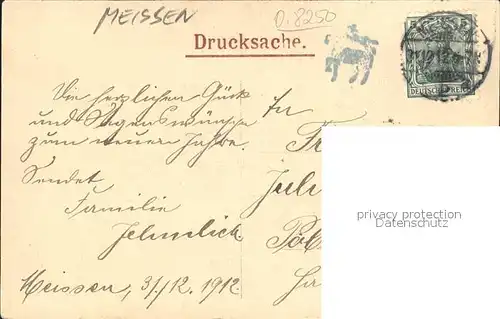 MEISSEN
D.8250
Drucksache.
5 5
DEUTSCHES REICH
Die herzlichen Glück
und Segenswünsche
zum neuen Jahre.
Sendet
Familie
Jehmlich.
Meissen, 31/12. 1912.
An
Fr
Jul
privacy protection
Datenschutz.